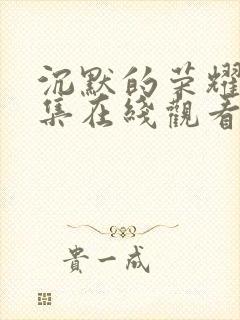 沉默的荣耀
集在綫觀看
貴一成